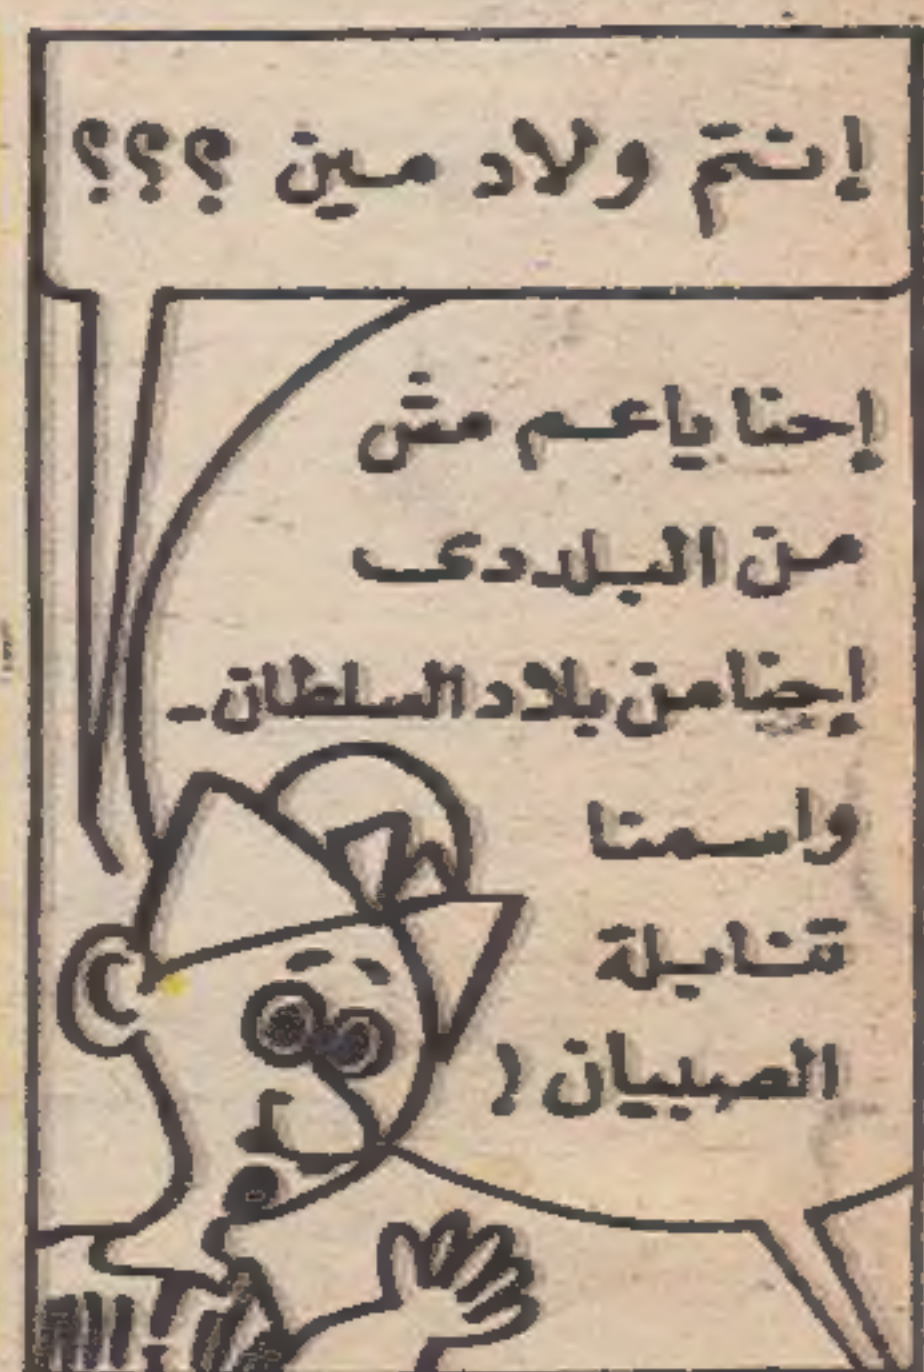 إنتم ولاد مين ؟؟؟
إحنا ياعم مش
من البلاد دى
إحنا من بلاد السلطان -
واسمنا
قنابلة
الصبيان !